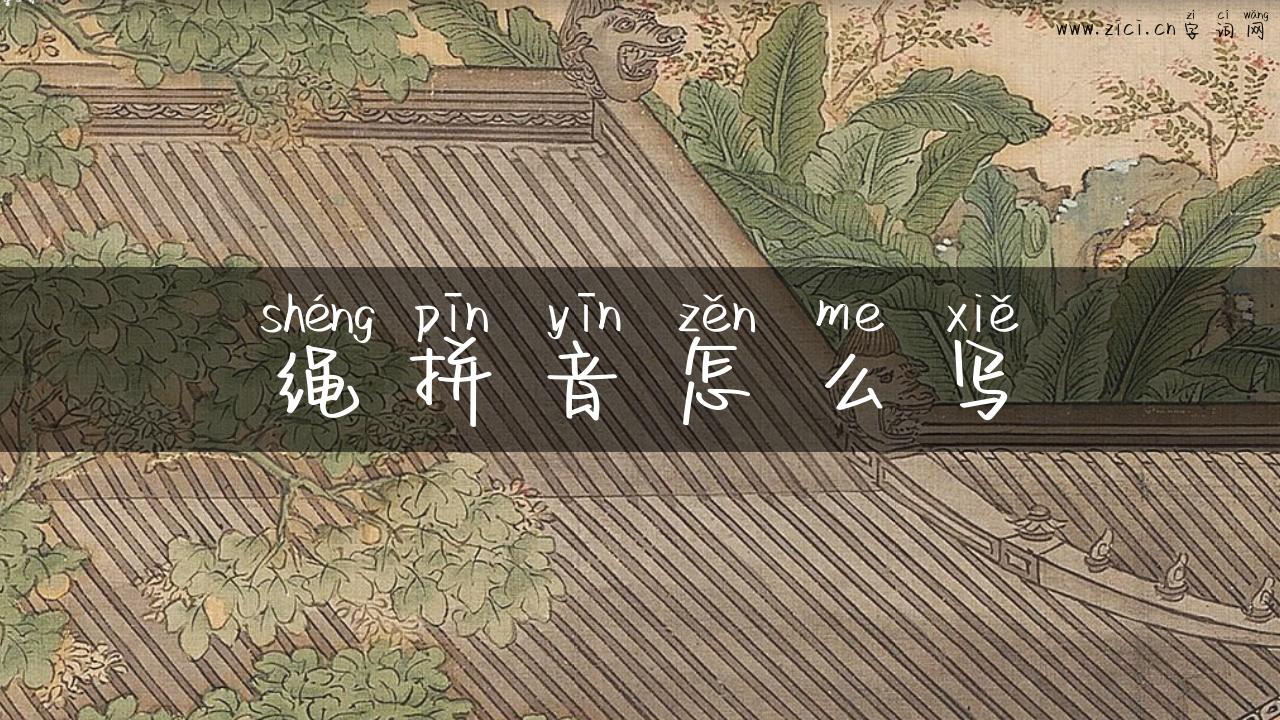 zì cí wǎng
www.zici.cn 字词网
shéng pīn yīn zěn me xiě
绳拼音怎么写